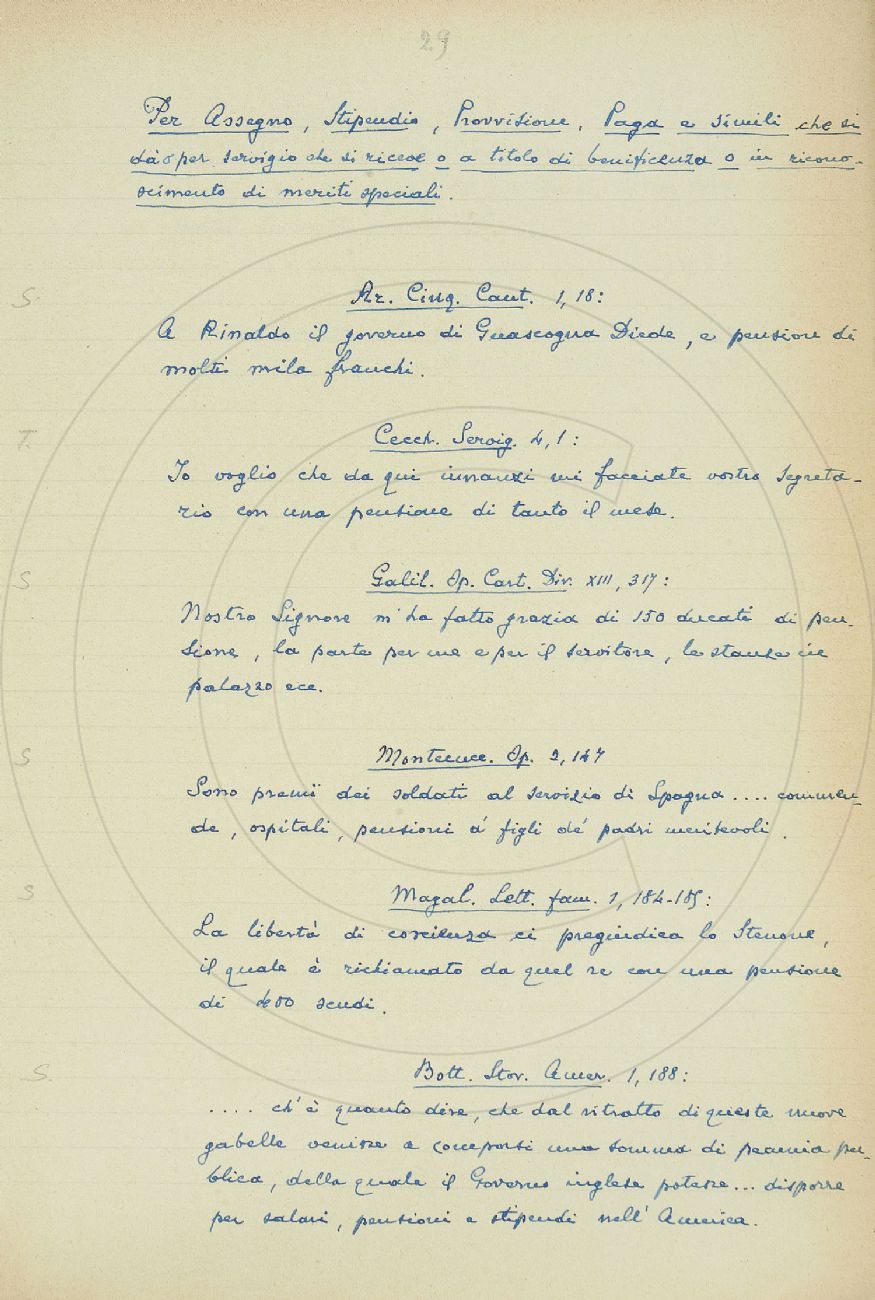 29
Per Assegno, Stipendio, Provvisione, Paga e simili che si
dà o per servigio che si riceve o a titolo di benificenza o in ricono-
scimento di meriti speciali.
S.
Ar. Cinq. Cant. 1, 18:
A Rinaldo il governo di Guascogna Diede, e pension di
molti mila franchi.
T.
Cecch. Servig. 4, 1:
Io voglio che da qui innanzi mi facciate vostro segreta-
rio con una pensione di tanto il mese.
S
Galil. Op. Cart. Div. XIII, 317:
Nostro Signore m'ha fatto grazia di 150 ducati di pen-
sione, la parte per me e per il servitore, le stanze in
palazzo ecc.
S
Montecucc. Op. 2, 147
Sono premii dei soldati al servizio di Spagna .... commen-
de, ospitali, pensioni a' figli de' padri meritevoli.
S
Magal. Lett. fam. 1, 184-185:
La libertà di coscienza ci pregiudica lo Stenone,
il quale è richiamato da quel re con una pensione
di 400 scudi.
S.
Bott. Stor. Amer. 1, 188:
.... ch'è quanto dire, che dal ritratto di queste nuove
gabelle venisse a comporsi una somma di pecunia pu-
blica, della quale il Governo inglese potesse... disporre
per salari, pensioni e stipendi nell'America.